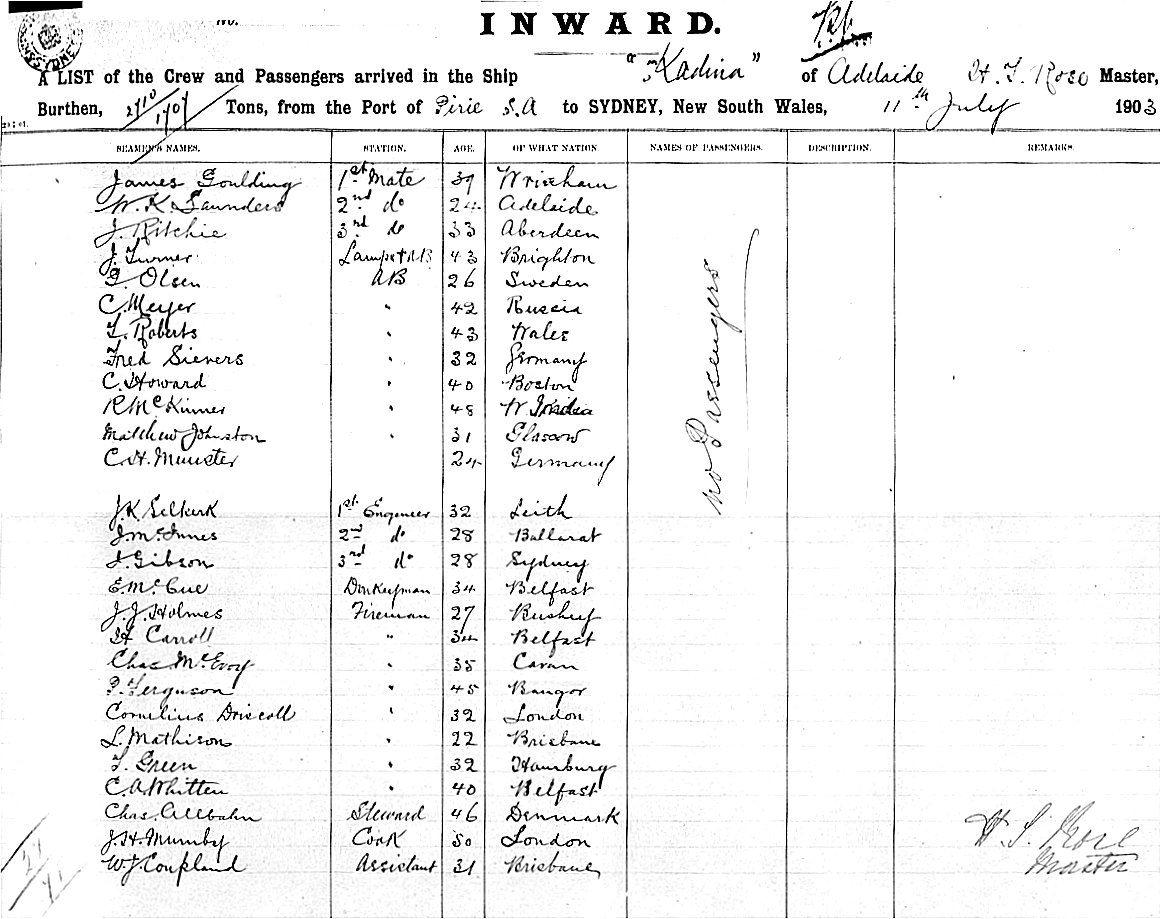 No.
INWARD.
A LIST of the Crew and Passengers arrived in the Ship "SS Kadina" of Adelaide H. S. Rose Master,
Burthen, 2710/1707 Tons, from the Port of Pirie S.A to SYDNEY, New South Wales, 11th July 1903
SEAMEN'S NAMES. STATION. AGE. OF WHAT NATION NAMES OF PASSENGERS. DESCRIPTION. REMARKS.
James Goulding 1st Mate 39 Wrixham
W. K. Saunders 2nd do 24 Adelaide
J. Ritchie 3rd do 33 Aberdeen
J. Turner Lamps & AB 43 Brighton
Olsen AB 26 Sweden
C. Meyer " 42 Russia
T. Roberts " 43 Wales
Fred Sievers " 32 Germany
C. Howard " 40 Boston
R McKinner " 48 W India
Matthew Johnston " 31 Glascow
C. H. Munster 24 Germany
No Passengers
J. K. Selkirk 1st Engineer 32 Leith
J. McInnes 2nd do 28 Ballarat
J. Gibson 3rd do 28 Sydney
E. McCue Donkeyman 34 Belfast
J. J. Holmes Fireman 27 Bushey
H Carroll " 34 Belfast
Chas McEvoy " 35 Cavan
P. Ferguson " 45 Bangor
Cornelius Driscoll " 32 London
L. Mathison " 22 Brisbane
T. Green " 32 Hamburg
C. A. Whitten " 40 Belfast
Chas. Allbahn Steward 46 Denmark
J. H. Mumby Cook 50 London
W. J. Coupland Assistant 31 Brisbane
H. S. Rose
Master